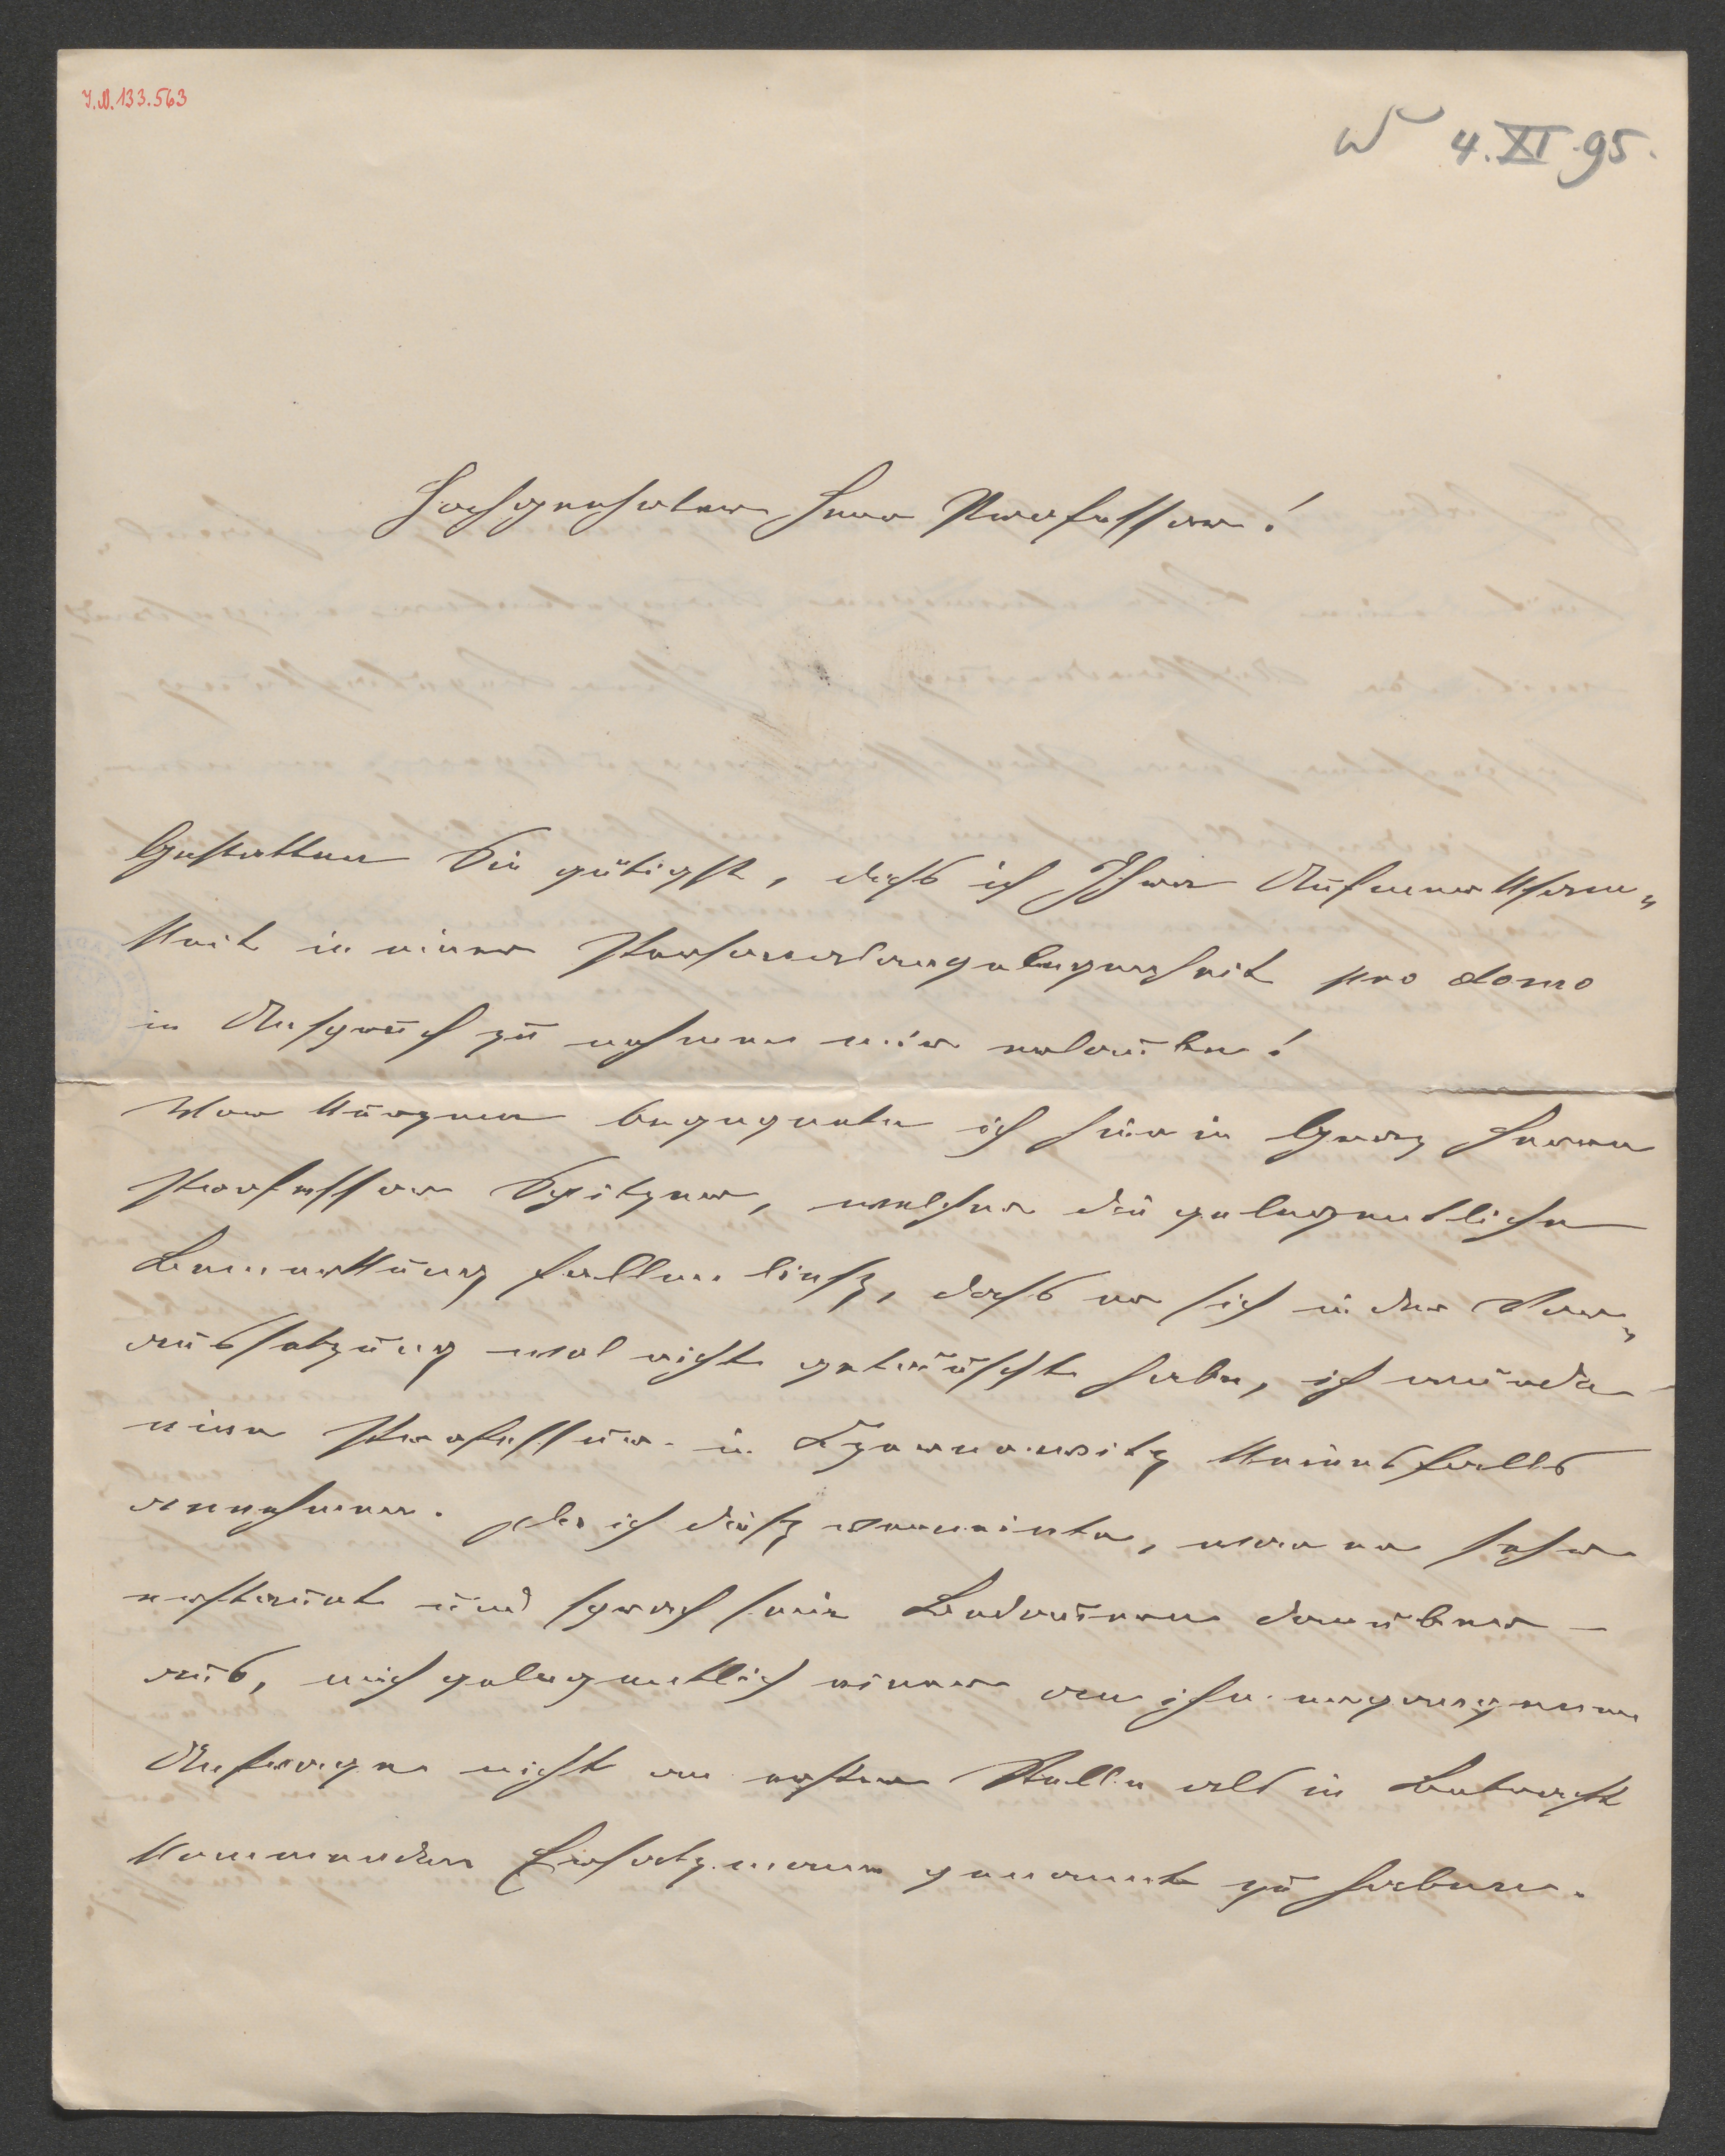 I.N. 133.563
W 4.XI.95.
Hochgeehrter Herr Professor!
Gestatten Sie gütigst, dass ich Ihre Aufmerksam-
keit in einer Personalangelegenheit pro domo
in Anspruch zu nehmen mir erlaube!
Vor kurzem begegnete ich hier in Graz Herrn
Professor Spitzer, welcher die gelegentliche
Bemerkung fallen ließ, dass er sich in der Vor-
aussetzung wol nicht getäuscht habe, ich würde
eine Professur in Czernowitz keinesfalls
annehmen. Als ich dieß verneinte, war er sehr
erstaunt und sprach sein Bedauern darüber
aus, mich gelegentlich einer an ihn ergangenen
Anfrage nicht an erster Stelle als in Betracht
kommenden Ersatzmann genannt zu haben.